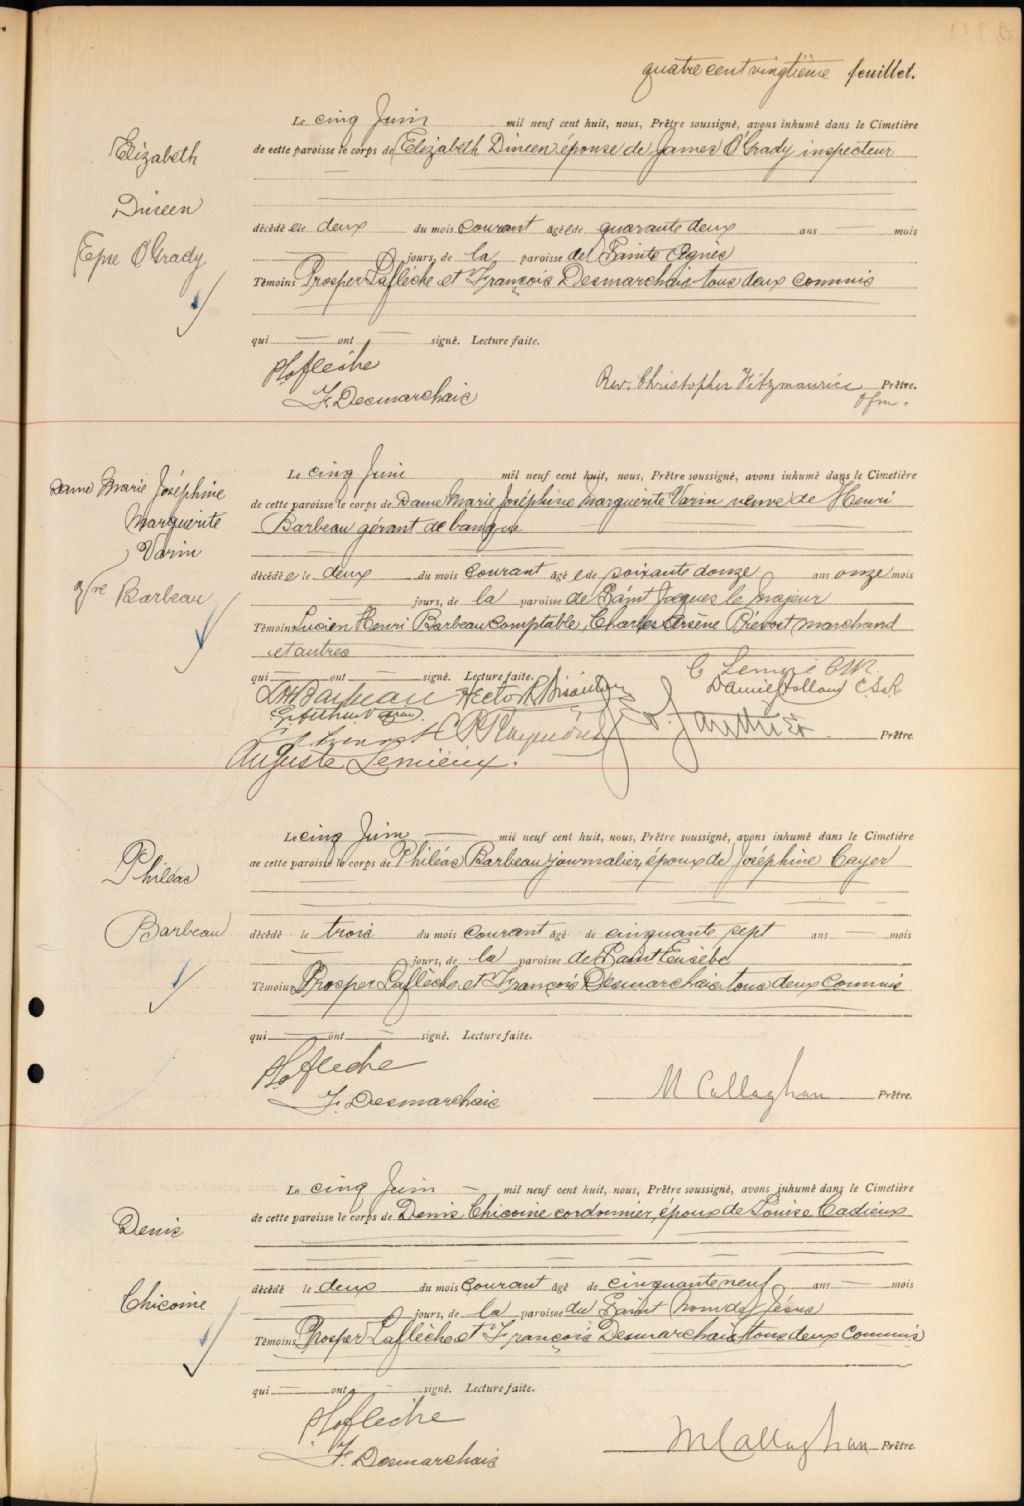 quatre cent vingtième feuillet.
Elizabeth
Dineen
Epse O'Grady
Le cinq Juin mil neuf cent huit, nous, Prêtre soussigné, avons inhumé dans le Cimetière
de cette paroisse le corps de Elizabeth Dineen épouse de James O'Grady inspecteur
décédée le deux du mois courant âgée de quarante deux ans — mois
— jours, de la paroisse de Sainte Agnès
Témoins Prosper Laflèche et François Desmarchais tous deux commis
qui — ont — signé. Lecture faite.
P. Laflèche
F. Desmarchais
Rev. Christopher Fitzmaurice Prêtre.
ofm.
Dame Marie Joséphine
Marguerite
Varin
Vve Barbeau
Le cinq Juin mil neuf cent huit, nous, Prêtre soussigné, avons inhumé dans le Cimetière
de cette paroisse le corps de Dame Marie Joséphine Marguerite Varin veuve de Henri
Barbeau gérant de banque
décédée le deux du mois courant âgée de soixante douze ans onze mois
— jours, de la paroisse de Saint Jacques le Majeur
Témoins Lucien Henri Barbeau comptable, Charles Arsène Prévost marchand
et autres
qui — ont — signé. Lecture faite.
L H Barbeau Hector
Daniel Holland C.Ss.R.
Raymond Gauthier Prêtre.
Auguste Lemieux.
Philéas
Barbeau
Le cinq Juin — mil neuf cent huit, nous, Prêtre soussigné, avons inhumé dans le Cimetière
de cette paroisse le corps de Philéas Barbeau journalier, époux de Joséphine Cayer
décédé le trois du mois courant âgé de cinquante sept ans — mois
— jours, de la paroisse de Saint Eusèbe
Témoins Prosper Laflèche et François Desmarchais tous deux commis
qui — ont — signé. Lecture faite.
P. Laflèche
F. Desmarchais
M Callaghan Prêtre.
Denis
Chicoine
Le cinq Juin — mil neuf cent huit, nous, Prêtre soussigné, avons inhumé dans le Cimetière
de cette paroisse le corps de Denis Chicoine cordonnier, époux de Louise Cadieux
décédé le deux du mois courant âgé de cinquante neuf ans — mois
— jours, de la paroisse du Saint Nom de Jésus
Témoins Prosper Laflèche et François Desmarchais tous deux commis
qui — ont — signé. Lecture faite.
P. Laflèche
F. Desmarchais
M Callaghan Prêtre.